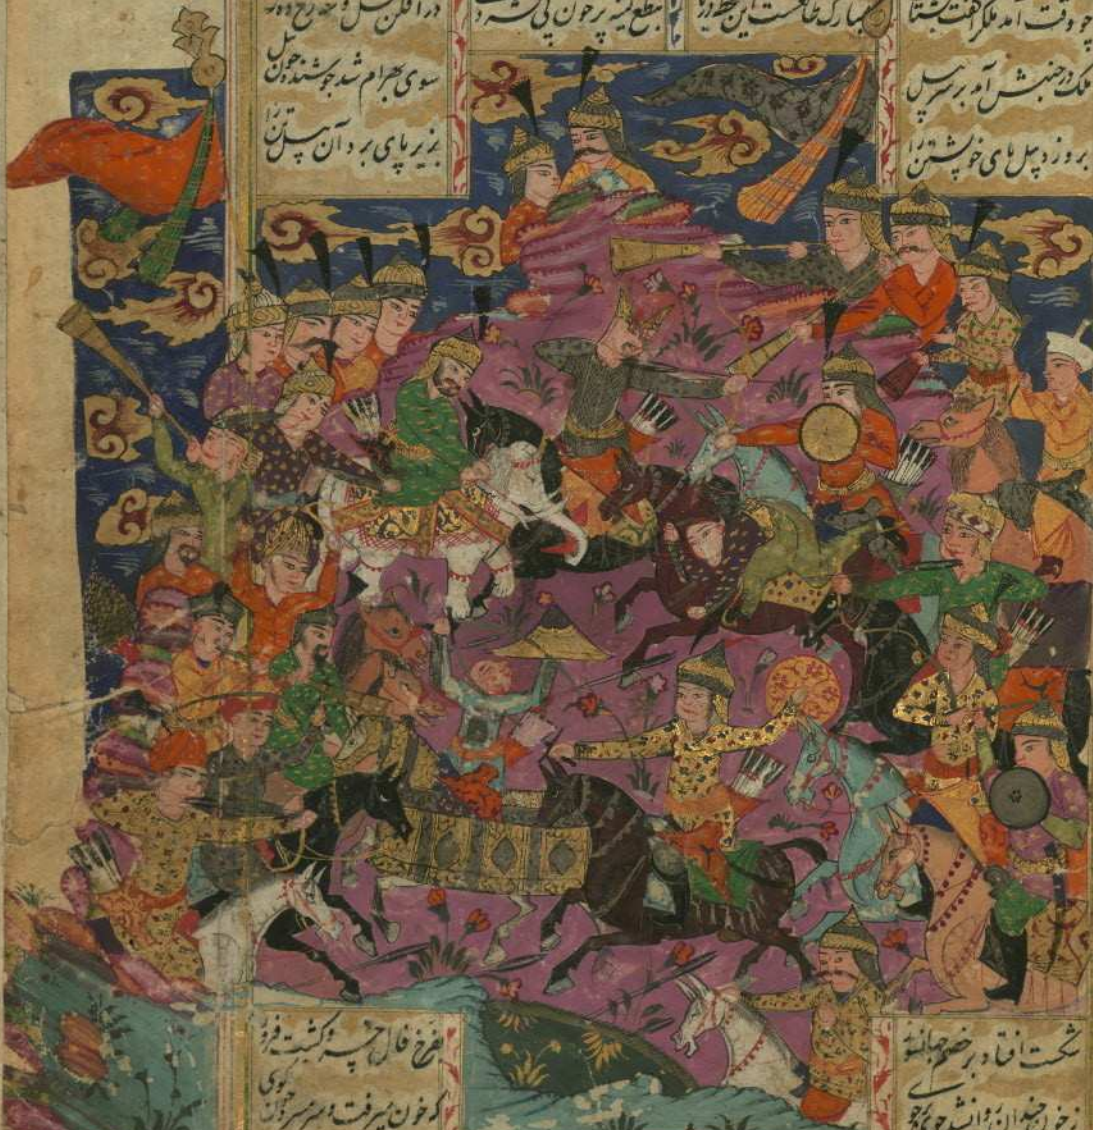 چو وقت آمد ملک را گفت بشتاب
مبارک طالعست این لحظه دریاب
بنطع کینه بر چون پی فشردی
درافکن پیل و شه رخ
ملک در جنبش آمد بر سر پیل
سوی بهرام شد جوشنده چون نیل
بروزد پیل پای خویشتن را
بزیر پای برد آن پیلتن را
شکست افتاد بر خصم جهانسوز
بفرخ فال خسرو گشت فیروز
ز خون چندان روان شد جوی در جوی
که خون میرفت و سر چون گوی